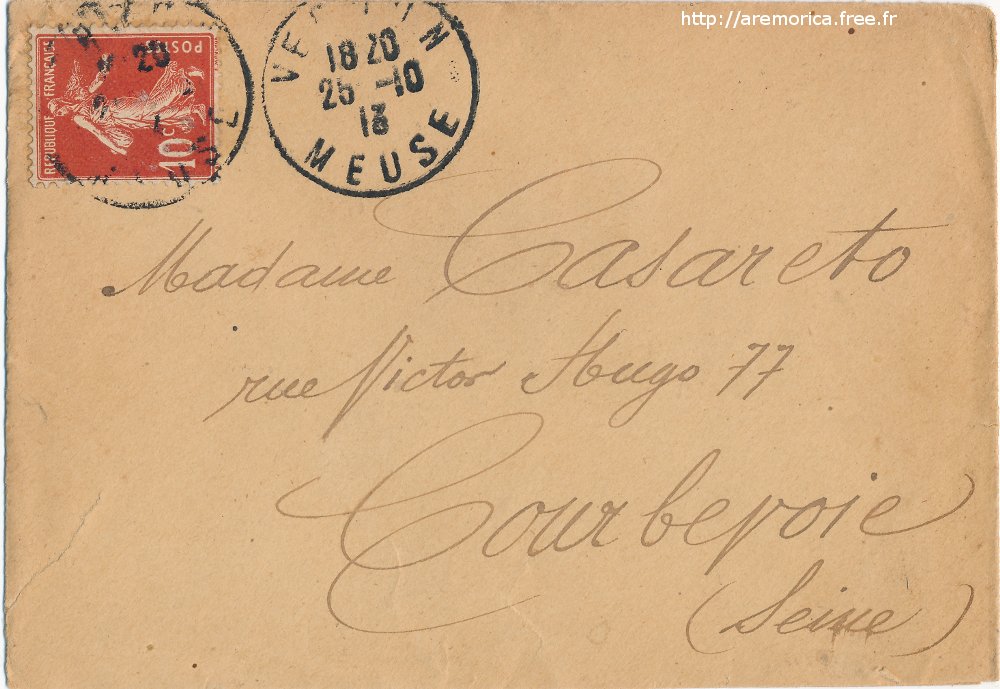 http://aremorica.free.fr
REPUBLIQUE FRANÇAISE
POSTES
10c
VERDUN
18 20
25 -10
13
MEUSE
Madame Casareto
rue Victor Hugo 77
Courbevoie
(Seine)